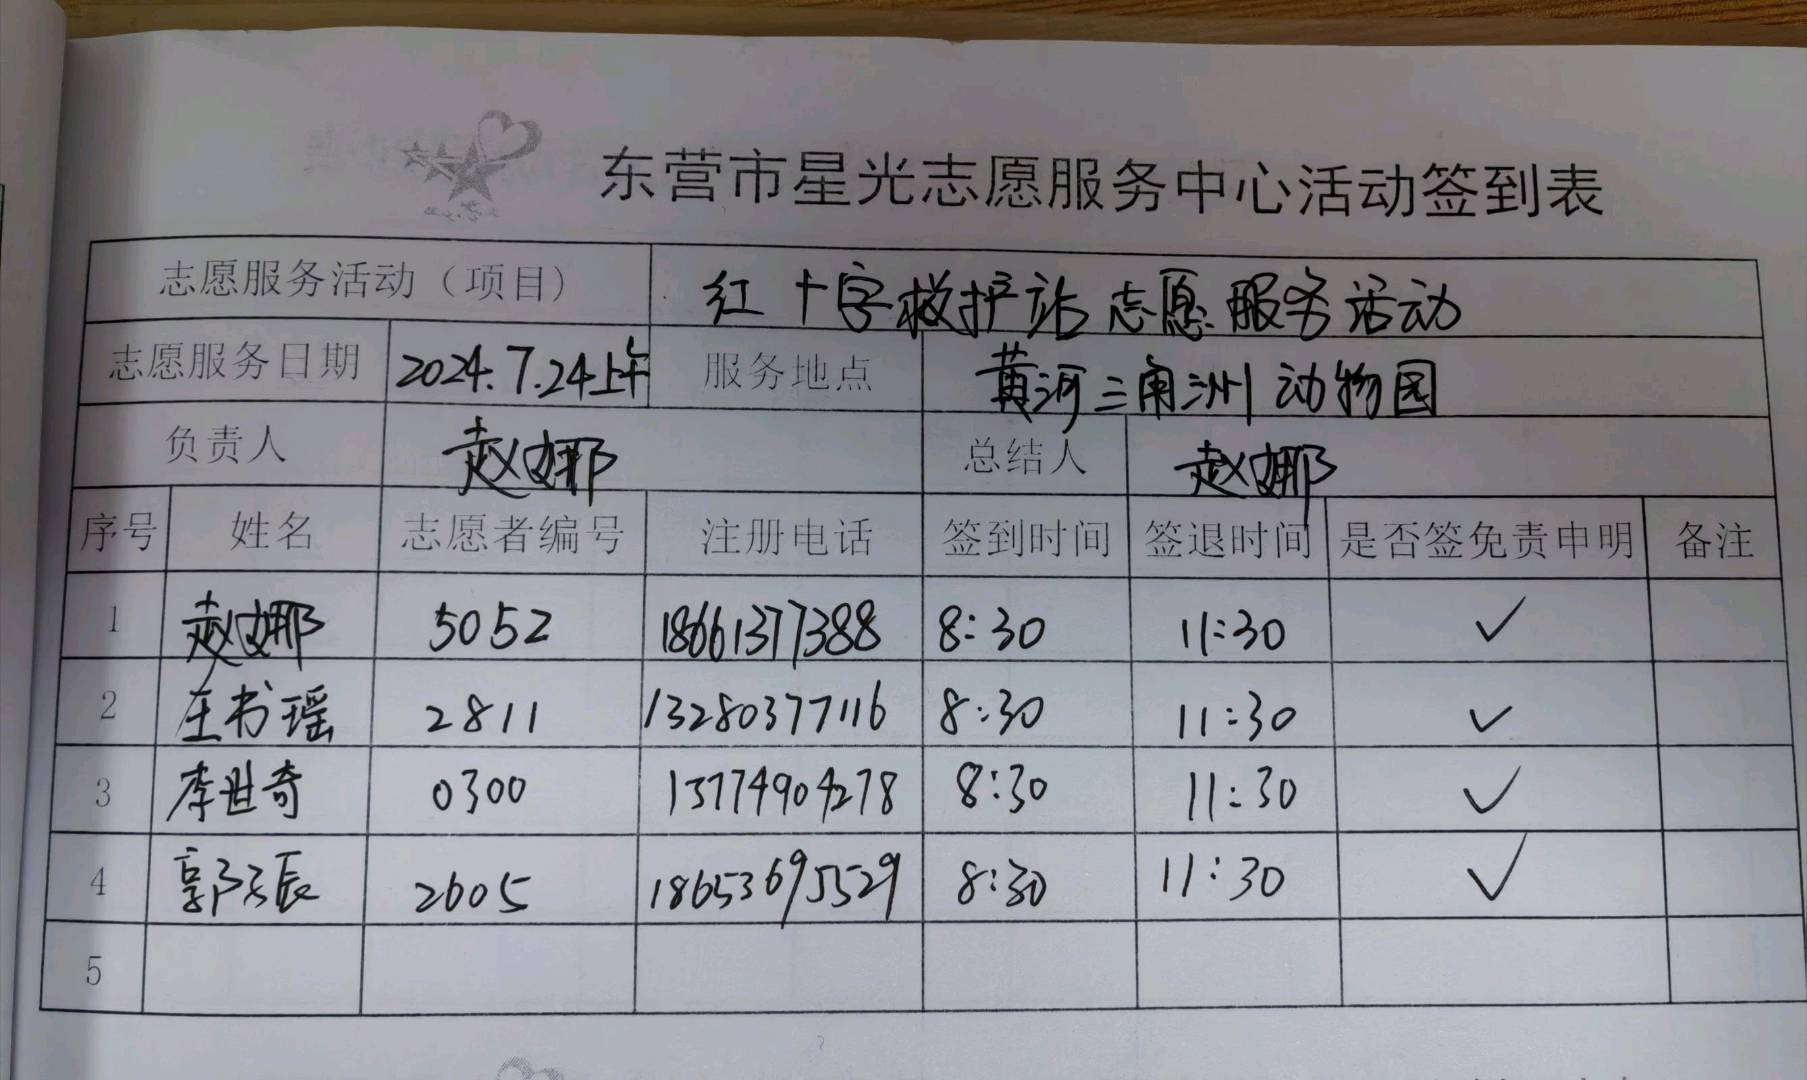 东营市星光志愿服务中心活动签到表
志愿服务活动（项目） 红十字救护站志愿服务活动
志愿服务日期 2024.7.24上午 服务地点 黄河三角洲动物园
负责人 赵娜 总结人 赵娜
序号 姓名 志愿者编号 注册电话 签到时间 签退时间 是否签免责申明 备注
1 赵娜 5052 18661377388 8:30 11:30 ✓
2 王书瑶 2811 13280377116 8:30 11:30 ✓
3 李世奇 0300 13774904278 8:30 11:30 ✓
4 郭辰 2605 18653695529 8:30 11:30 ✓
5